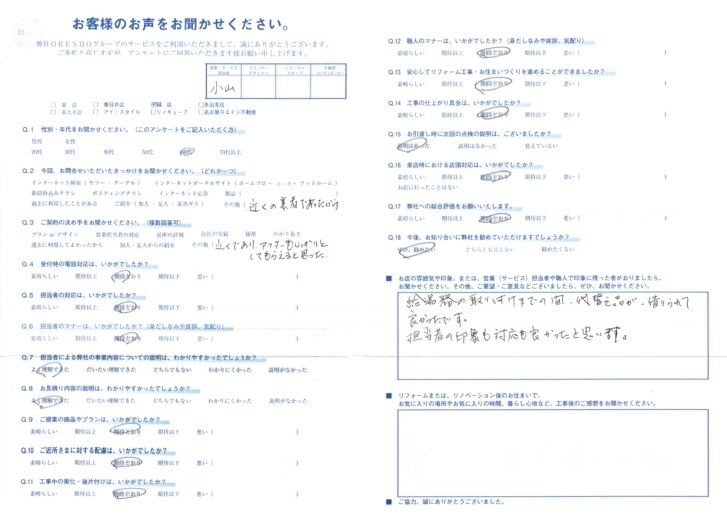 お客様のお声をお聞かせください。
弊社OKESHOグループのサービスをご利用いただきまして、誠にありがとうございます。
ご多忙と存じますが、アンケートにご回答いただきます様お願い申し上げます。
小山
春日井店
多治見店
アイ・スタイル
リノキューブ
名古屋ロエイン不動産
Q.1 性別・年代をお聞かせください。（このアンケートをご記入いただく方）
男性 女性
20代 30代 40代 50代 60代 70代以上
Q.2 今回、お問合せいただいたきっかけをお聞かせください。（どれか一つ）
インターネット検索（ヤフー・グーグル） インターネットポータルサイト（ホームプロ・
新聞折込みチラシ ポスティングチラシ インターネット広告 雑誌（ ）
過去に利用したことがある ご紹介（知人・友人・東邦ガス） その他（近くの業者であったから
Q.3 ご契約の決め手をお聞かせください。（複数回答可）
プラン or デザイン 営業担当者の対応 近所の評判 会社の実績 価格 わかり易さ
過去に利用してよかったから 知人・友人からの紹介 その他（近くであり、アフターもしっかりと
してもらえると思った
Q.4 受付時の電話対応は、いかがでしたか？
素晴らしい 期待以上 期待どおり 期待以下 悪い（ ）
Q.5 担当者の対応は、いかがでしたか？
素晴らしい 期待以上 期待どおり 期待以下 悪い（ ）
Q.6 担当者のマナーは、いかがでしたか？（身だしなみや挨拶、気配り）
素晴らしい 期待以上 期待どおり 期待以下 悪い（ ）
Q.7 担当者による弊社の事業内容についての説明は、わかりやすかったでしょうか？
よく理解できた だいたい理解できた どちらでもない わかりにくかった 説明がなかった
Q.8 お見積り内容の説明は、わかりやすかったでしょうか？
よく理解できた だいたい理解できた どちらでもない わかりにくかった 説明がなかった
Q.9 ご提案の商品やプランは、いかがでしたか？
素晴らしい 期待以上 期待どおり 期待以下 悪い（ ）
Q.10 ご近所さまに対する配慮は、いかがでしたか？
素晴らしい 期待以上 期待どおり 期待以下 悪い（ ）
Q.11 工事中の美化・後片付けは、いかがでしたか？
素晴らしい 期待以上 期待どおり 期待以下 悪い（ ）
Q.12 職人のマナーは、いかがでしたか？（身だしなみや挨拶、気配り）
素晴らしい 期待以上 期待どおり 期待以下 悪い（ ）
Q.13 安心してリフォーム工事・お住まいづくりを進めることができましたか？
素晴らしい 期待以上 期待どおり 期待以下 悪い（ ）
Q.14 工事の仕上がり具合は、いかがでしたか？
素晴らしい 期待以上 期待どおり 期待以下 悪い（ ）
Q.15 お引渡し時に次回の点検の説明は、ございましたか？
説明はあった 説明はなかった 覚えていない
Q.16 来店時における店頭対応は、いかがでしたか？
素晴らしい 期待以上 期待どおり 期待以下 悪い（ ）
お店に行ったことはない
Q.17 弊社への総合評価をお願いいたします。
素晴らしい 期待以上 期待どおり 期待以下 悪い（ ）
Q.18 今後、お知り合いに弊社を勧めていただけますでしょうか？
ぜひ、勧めたい どちらとも言えない 勧めたくない
■ お店の雰囲気や印象、または、営業（サービス）担当者や職人で印象に残った者がおりましたら、
お聞かせください。その他、ご要望・ご意見などございましたら、ぜひ、お聞かせください。
給湯器の取り付けまでの間、代替え品が、借りられて
良かったです。
担当者の印象も対応も良かったと思います。
■ リフォームまたは、リノベーション後のお住まいで、
お気に入りの場所やお気に入りの時間、暮らし心地など、工事後のご感想をお聞かせください。
■ ご協力、誠にありがとうございました。